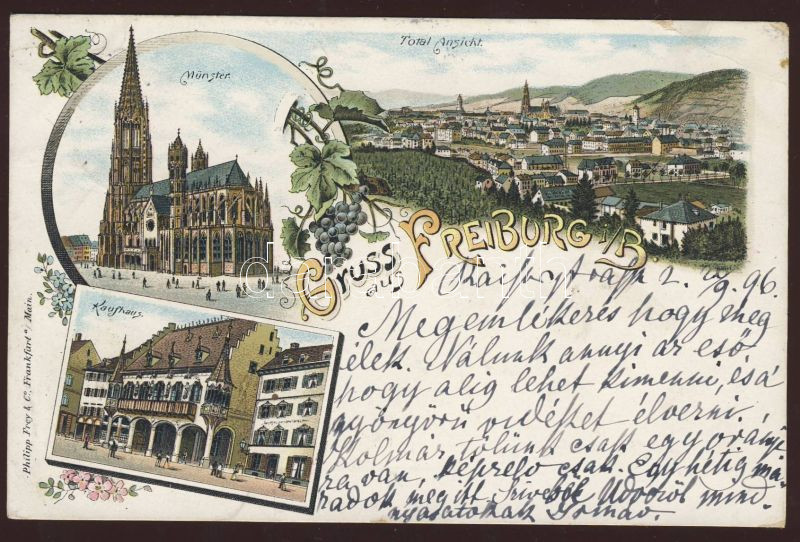 Total Ansicht.
Münster.
Gruss aus FREIBURG i/B.
Kaufhaus.
Philipp Frey & C. Frankfurt a/Main.
Kaiserstrasse 2. /9 96.
Megemlékezés hogy meg
élek. Nálunk annyi az eső
hogy alig lehet kimenni, és a
gyönyörű vidéket élvezni.
Kolmár tőlünk csak egy órányi
ra van, képzelo csak. Egy hétig ma
radok meg itt szivesöl Udvözöl mind
nyájatokat